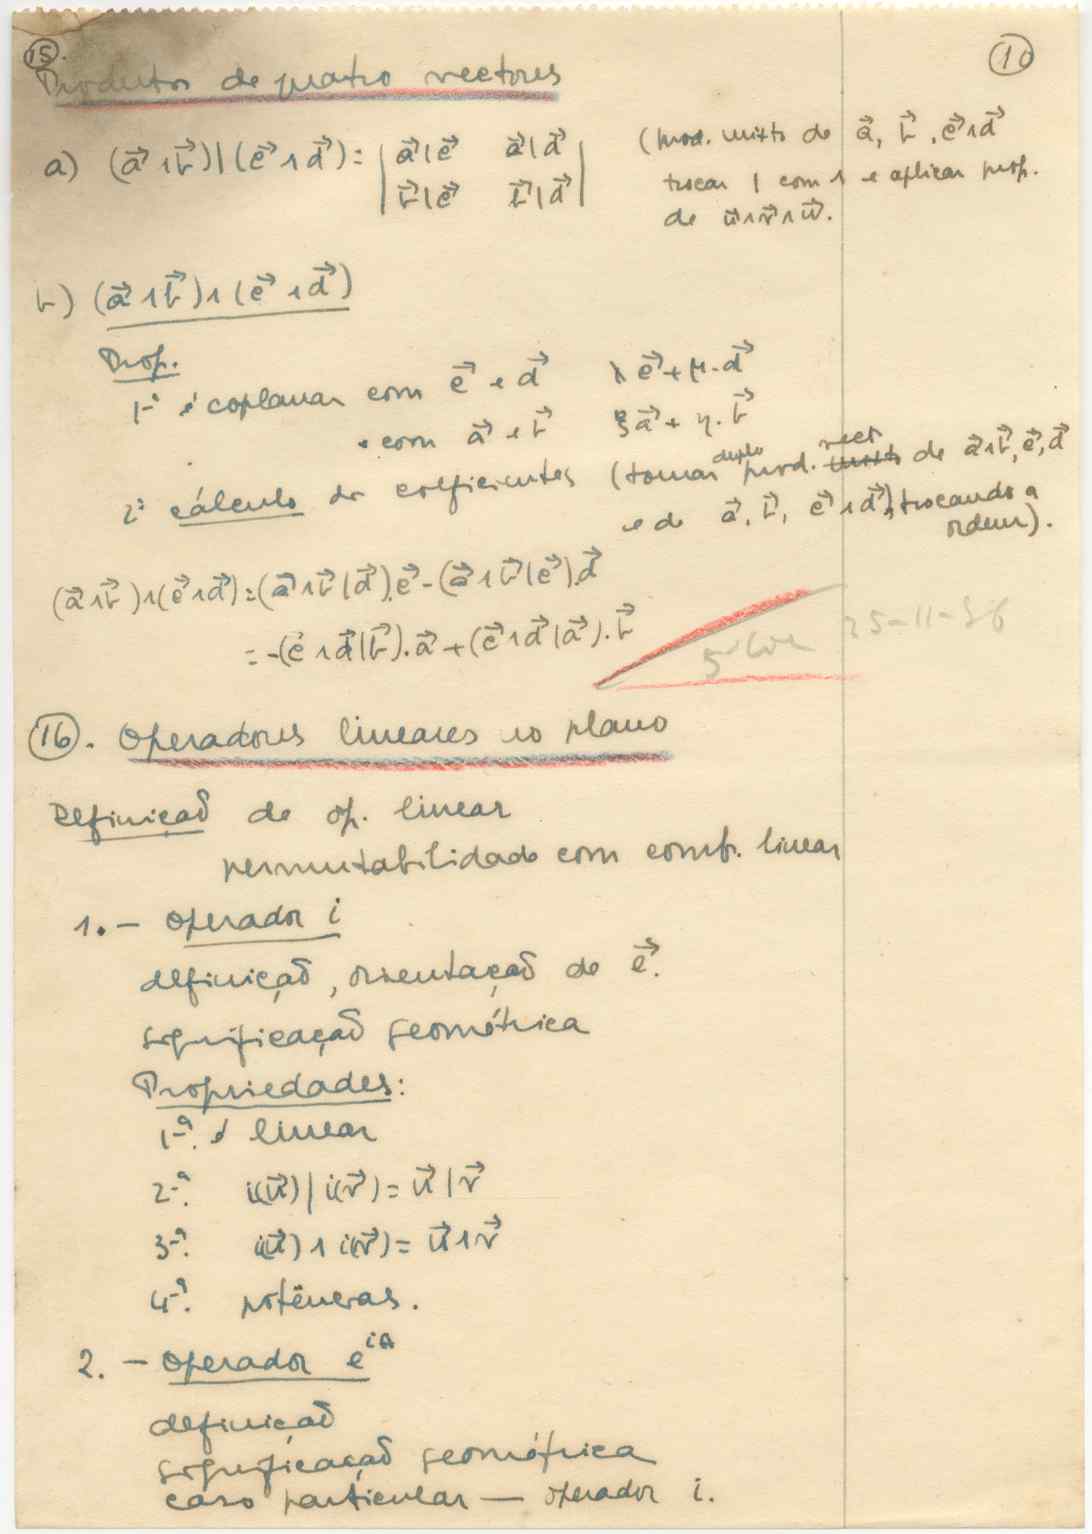 15.
10
Produtos de quatro vectores
a) (a⃗ ∧ b⃗) | (c⃗ ∧ d⃗) = | a⃗|c⃗ a⃗|d⃗ |
| b⃗|c⃗ b⃗|d⃗ |
(prod. misto de a⃗, b⃗, c⃗∧d⃗
trocar | com ∧ e aplicar prop.
de u⃗∧v⃗∧w⃗.
b) (a⃗ ∧ b⃗) ∧ (c⃗ ∧ d⃗)
Prop.
1ª é coplanar com c⃗ e d⃗ λc⃗ + μ.d⃗
e com a⃗ e b⃗ ξa⃗ + η.b⃗
2ª cálculo dos coeficientes (tomar duplo prod. vect misto de a⃗∧b⃗, c⃗, d⃗
e de a⃗, b⃗, c⃗∧d⃗, trocando a
ordem).
(a⃗∧b⃗)∧(c⃗∧d⃗) = (a⃗∧b⃗|d⃗).c⃗ - (a⃗∧b⃗|c⃗).d⃗
= -(c⃗∧d⃗|b⃗).a⃗ + (c⃗∧d⃗|a⃗).b⃗
25-11-56
16. Operadores lineares no plano
Definição de op. linear
permutabilidade com comb. linear
1. - operador i
definição, orientação de c⃗.
significação geométrica
Propriedades:
1ª. é linear
2ª. i(u⃗) | i(v⃗) = u⃗ | v⃗
3ª. i(u⃗) ∧ i(v⃗) = u⃗ ∧ v⃗
4ª. potências.
2. - operador e^{iθ}
definição
significação geométrica
caso particular — operador i.